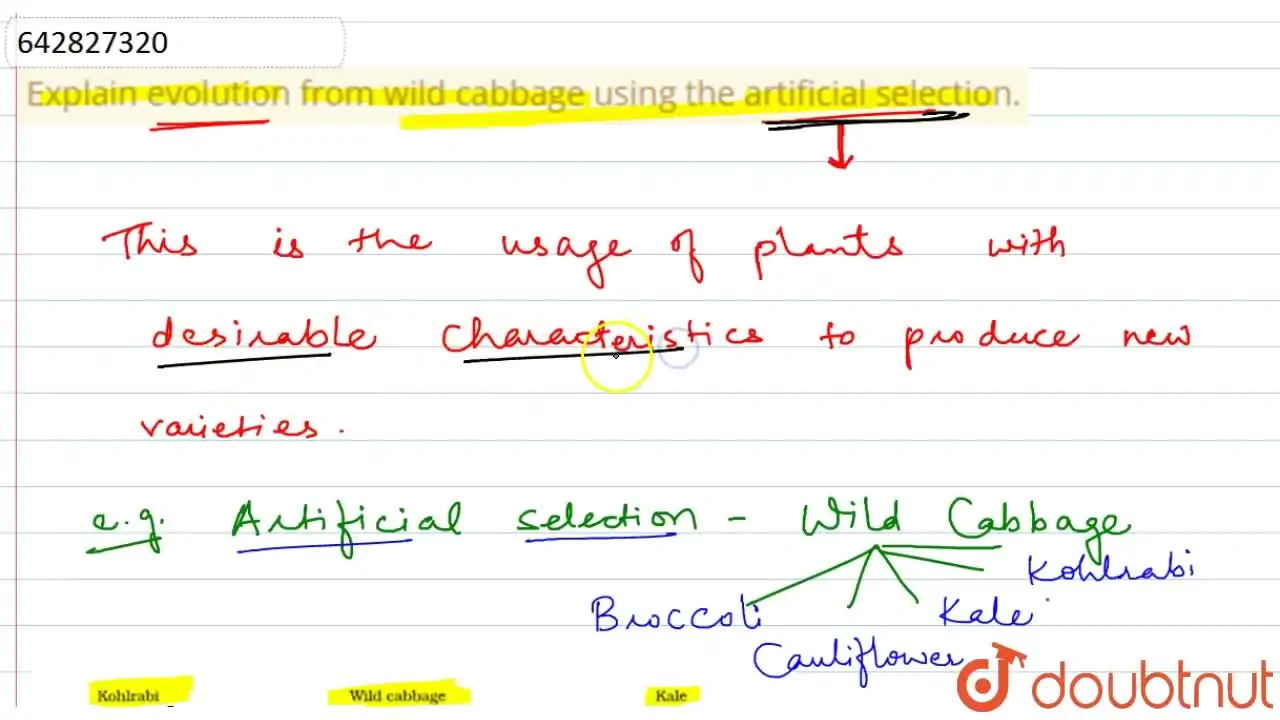 642827320
Explain evolution from wild cabbage using the artificial selection.
This is the usage of plants with
desirable characteristics to produce new
varieties.
e.g. Artificial selection - Wild Cabbage
Kohlrabi
Broccoli Kale
Cauliflower
doubtnut
Kohlrabi Wild cabbage Kale